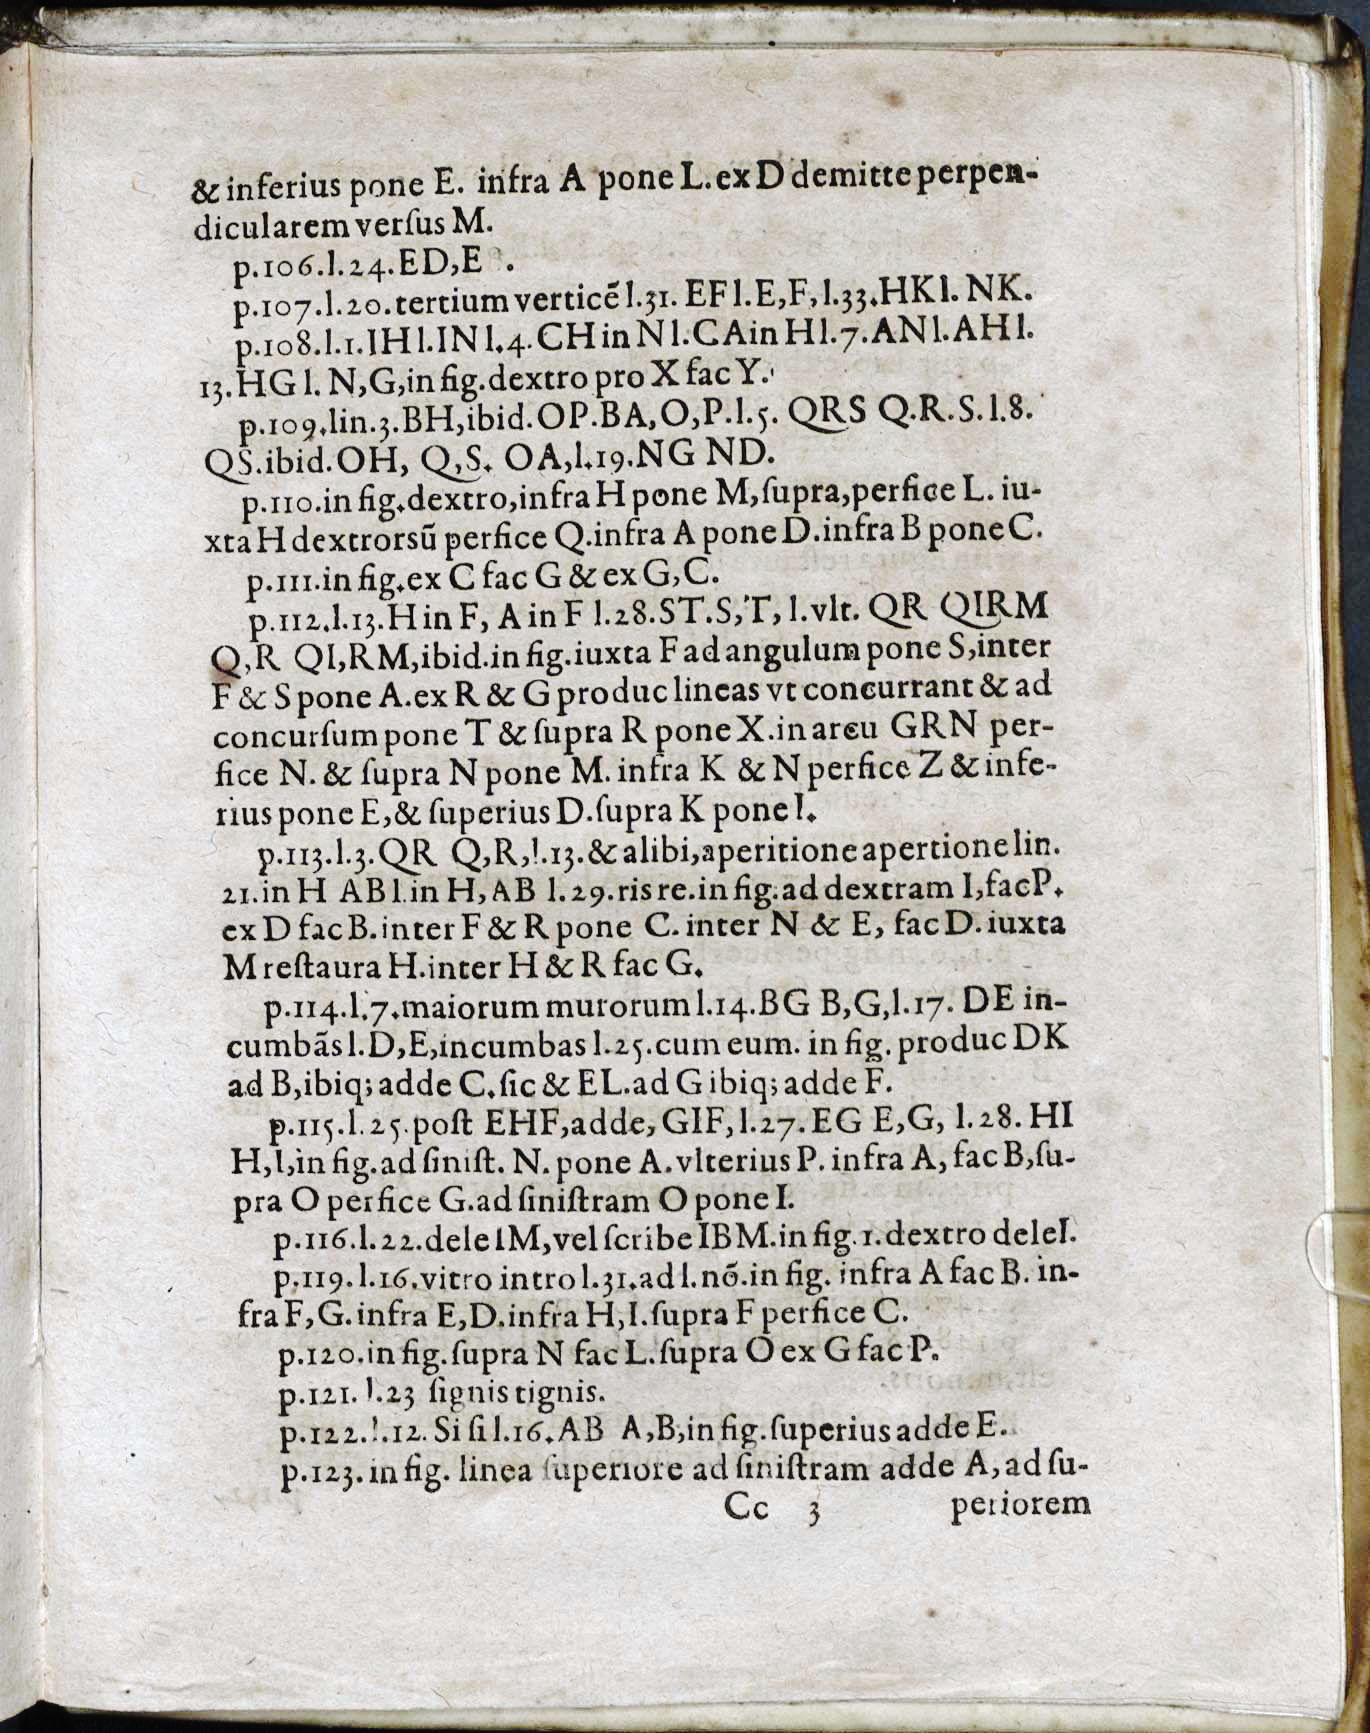 & inferius pone E. infra A pone L. ex D demitte perpen-
dicularem verſus M.
p.106.l.24.ED,E .
p.107.l.20.tertium verticẽ l.31. EF l.E,F,l.33.HK l. NK.
p.108.l.1.IH l.IN l.4.CH in N l.CA in H l.7.AN l.AH l.
13.HG l. N,G,in fig.dextro pro X fac Y.
p.109.lin.3.BH,ibid.OP.BA,O,P.l.5. QRS Q.R.S.l.8.
QS.ibid.OH, Q,S. OA,l.19.NG ND.
p.110.in fig.dextro,infra H pone M,ſupra,perfice L. iu-
xta H dextrorsũ perfice Q.infra A pone D.infra B pone C.
p.111.in fig.ex C fac G & ex G,C.
p.112.l.13.H in F, A in F l.28.ST.S,T, l.vlt. QR QIRM
Q,R QI,RM,ibid.in fig.iuxta F ad angulum pone S,inter
F & S pone A.ex R & G produc lineas vt concurrant & ad
concurſum pone T & ſupra R pone X.in arcu GRN per-
fice N. & ſupra N pone M. infra K & N perfice Z & infe-
rius pone E,& ſuperius D.ſupra K pone I.
p.113.l.3.QR Q,R,l.13.& alibi,aperitione apertione lin.
21.in H AB l.in H,AB l.29.ris re.in fig.ad dextram I,fac P.
ex D fac B.inter F & R pone C. inter N & E, fac D. iuxta
M reſtaura H.inter H & R fac G.
p.114.l.7.maiorum murorum l.14.BG B,G,l.17. DE in-
cumbãs l.D,E,incumbas l.25.cum eum. in fig. produc DK
ad B,ibiq; adde C.ſic & EL.ad G ibiq; adde F.
p.115.l.25.poſt EHF,adde, GIF,l.27.EG E,G, l.28. HI
H,I,in fig.ad ſiniſt. N. pone A.vlterius P. infra A, fac B,ſu-
pra O perfice G.ad ſiniſtram O pone I.
p.116.l.22.dele IM,vel ſcribe IBM.in fig.1.dextro dele I.
p.119.l.16.vitro intro l.31.ad l.nõ.in fig. infra A fac B. in-
fra F,G.infra E,D.infra H,I.ſupra F perfice C.
p.120.in fig.ſupra N fac L.ſupra O ex G fac P.
p.121. l.23 ſignis tignis.
p.122.l.12. Si ſi l.16.AB A,B,in fig.ſuperius adde E.
p.123.in fig. linea ſuperiore ad ſiniſtram adde A, ad ſu-
Cc 3 periorem